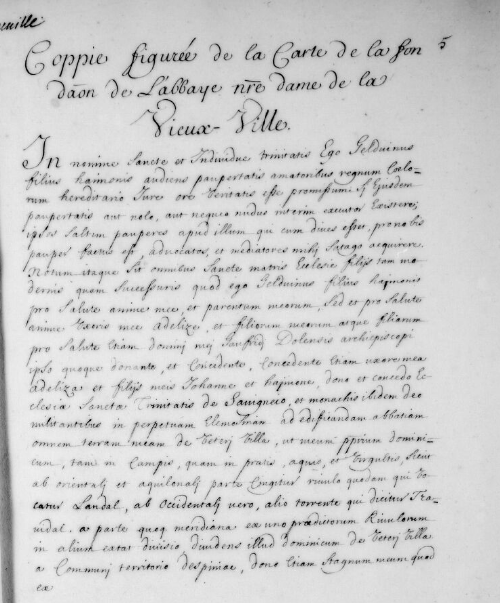 euille
5
Coppie figurée de la Carte de la fon
dãon de L'abbaye nr̃e dame de la
Vieux-Ville.
In nomine Sancte et Individue trinitatis Ego Gelduinus
filius haimonis audiens paupertatis amatoribus regnum Coelo-
rum hereditario Jure ore Veritatis esse promissum, Ejusdem
paupertatis aut nolo, aut nequeo nudus interim executor Existere;
ipsos saltem pauperes apud illum qui cum dives esset, pro nobis
pauper factus est, advocatos, et mediatores mihj satago acquirere
Notum itaque Sit omnibus Sancte matris Ecclesie filijs tam mo
dernis quam Successuris quod ego Gelduinus filius hajmonis
pro Salute anime mee, et parentum meorum, Sed et pro Salute
anime Uxoris mee Adelize, et filiorum meorum atque filiarum
pro Salute Etiam dominj mej Dolensis archiepiscopi
ipso quoque donante, et Concedente, Concedente Etiam uxore mea
adeliza et filijs meis Johanne et hajmone, dono et concedo Ec
clesia Sancta Trinitatis de Savigneio, et monachis ibidem deo
militantibus in perpetuam Elemosinam ad edifficandam abbatiam
omnem terram meam de Veterj Villa, ut meum pprium domini-
cum, tam in Campis, quam in pratis, aquis, et Virgultis, Sicut
ab orientalj et aquilonalj parte Cingitur rivulo quodam qui Vo
catur Landal, ab Occidentalj vero, alio torrente qui dicitur Tra-
vidal. a parte quoq meridiana ex uno prædictorum Rivulorum
in alium extat divisio dividens illud dominicum de Veterj Villa
a Communj territorio despiniac, dono Etiam Stagnum meum quod
ex